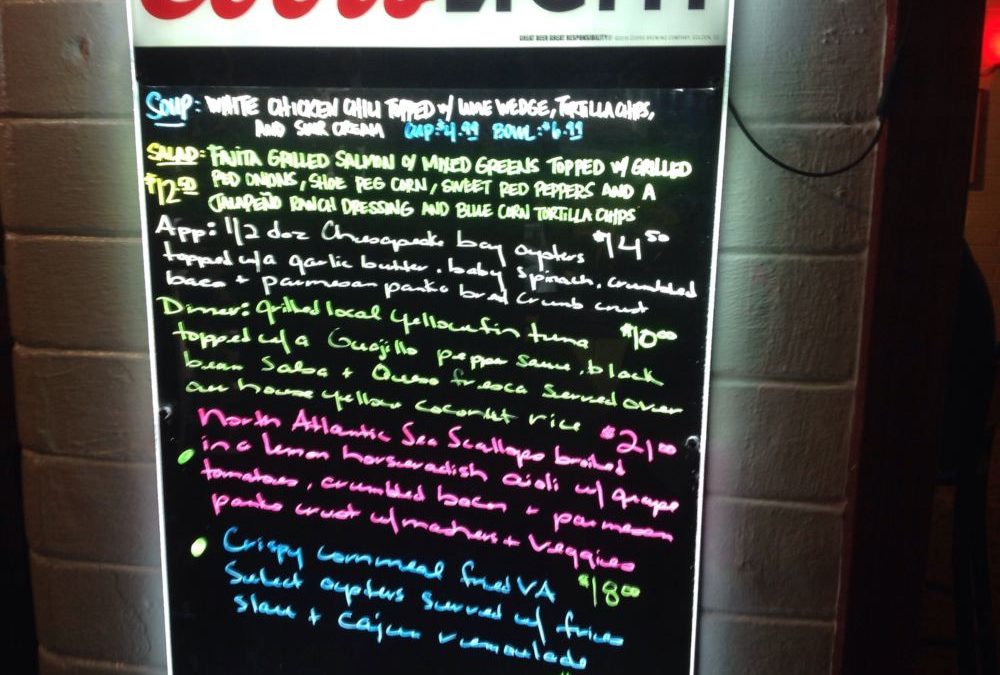 Coors LIGHT
GREAT BEER GREAT RESPONSIBILITY
SOUP: WHITE CHICKEN CHILI TOPPED w/ LIME WEDGE, TORTILLA CHIPS,
AND SOUR CREAM CUP $4.99 BOWL: $6.99
SALAD: FAJITA GRILLED SALMON o/ MIXED GREENS TOPPED w/ GRILLED
$12.50 RED ONIONS, SHOE PEG CORN, SWEET RED PEPPERS AND A
JALAPENO RANCH DRESSING AND BLUE CORN TORTILLA CHIPS
App: 1/2 doz Chesapeake bay oysters $14.50
topped w/a garlic butter, baby spinach, crumbled
bacon + parmesan panko bred crumb crust
Dinner: grilled local yellowfin tuna $10.00
topped w/a Guajillo pepper sauce, black
bean Salsa + Queso fresca served over
our house yellow coconut rice
North Atlantic Sea Scallops broiled $21.00
in a lemon horseradish aioli w/ grape
tomatoes, crumbled bacon + parmesan
panko crust w/mashers + veggies
Crispy cornmeal fried VA $18.00
Select oysters served w/ fries
slaw + Cajun remoulade